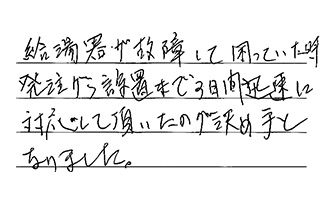 給湯器が故障して困っていた時
発注から設置まで3日間迅速に
対応して頂いたのが決め手と
なりました。